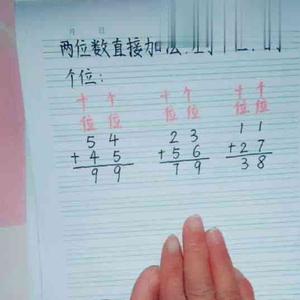 月 日
两位数直接加法
个位:
十 个 十 个 十 个
位 位 位 位 位 位
5 4 2 3 1 1
+ 4 5 + 5 6 + 2 7
9 9 7 9 3 8